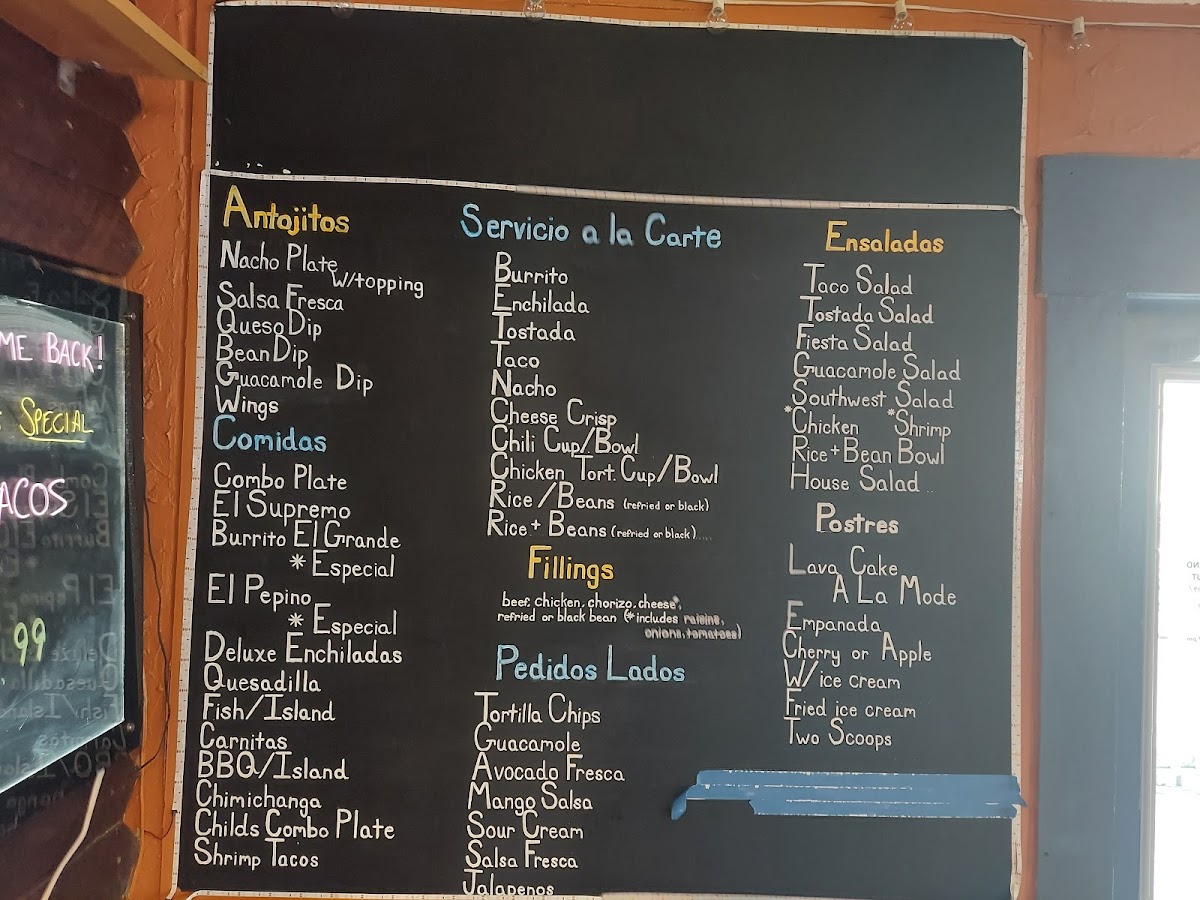 ME BACK!
SPECIAL
ACOS
99
Antojitos
Nacho Plate
w/topping
Salsa Fresca
Queso Dip
Bean Dip
Guacamole Dip
Wings
Comidas
Combo Plate
El Supremo
Burrito El Grande
*Especial
El Pepino
*Especial
Deluxe Enchiladas
Quesadilla
Fish/Island
Carnitas
BBQ/Island
Chimichanga
Childs Combo Plate
Shrimp Tacos
Servicio a la Carte
Burrito
Enchilada
Tostada
Taco
Nacho
Cheese Crisp
Chili Cup/Bowl
Chicken Tort. Cup/Bowl
Rice/Beans (refried or black)
Rice + Beans (refried or black)....
Fillings
beef, chicken, chorizo, cheese*,
refried or black bean (*includes raisins,
onions, tomatoes)
Pedidos Lados
Tortilla Chips
Guacamole
Avocado Fresca
Mango Salsa
Sour Cream
Salsa Fresca
Jalapenos
Ensaladas
Taco Salad
Tostada Salad
Fiesta Salad
Guacamole Salad
Southwest Salad
*Chicken *Shrimp
Rice + Bean Bowl
House Salad
Postres
Lava Cake
A La Mode
Empanada
Cherry or Apple
W/ice cream
Fried ice cream
Two Scoops